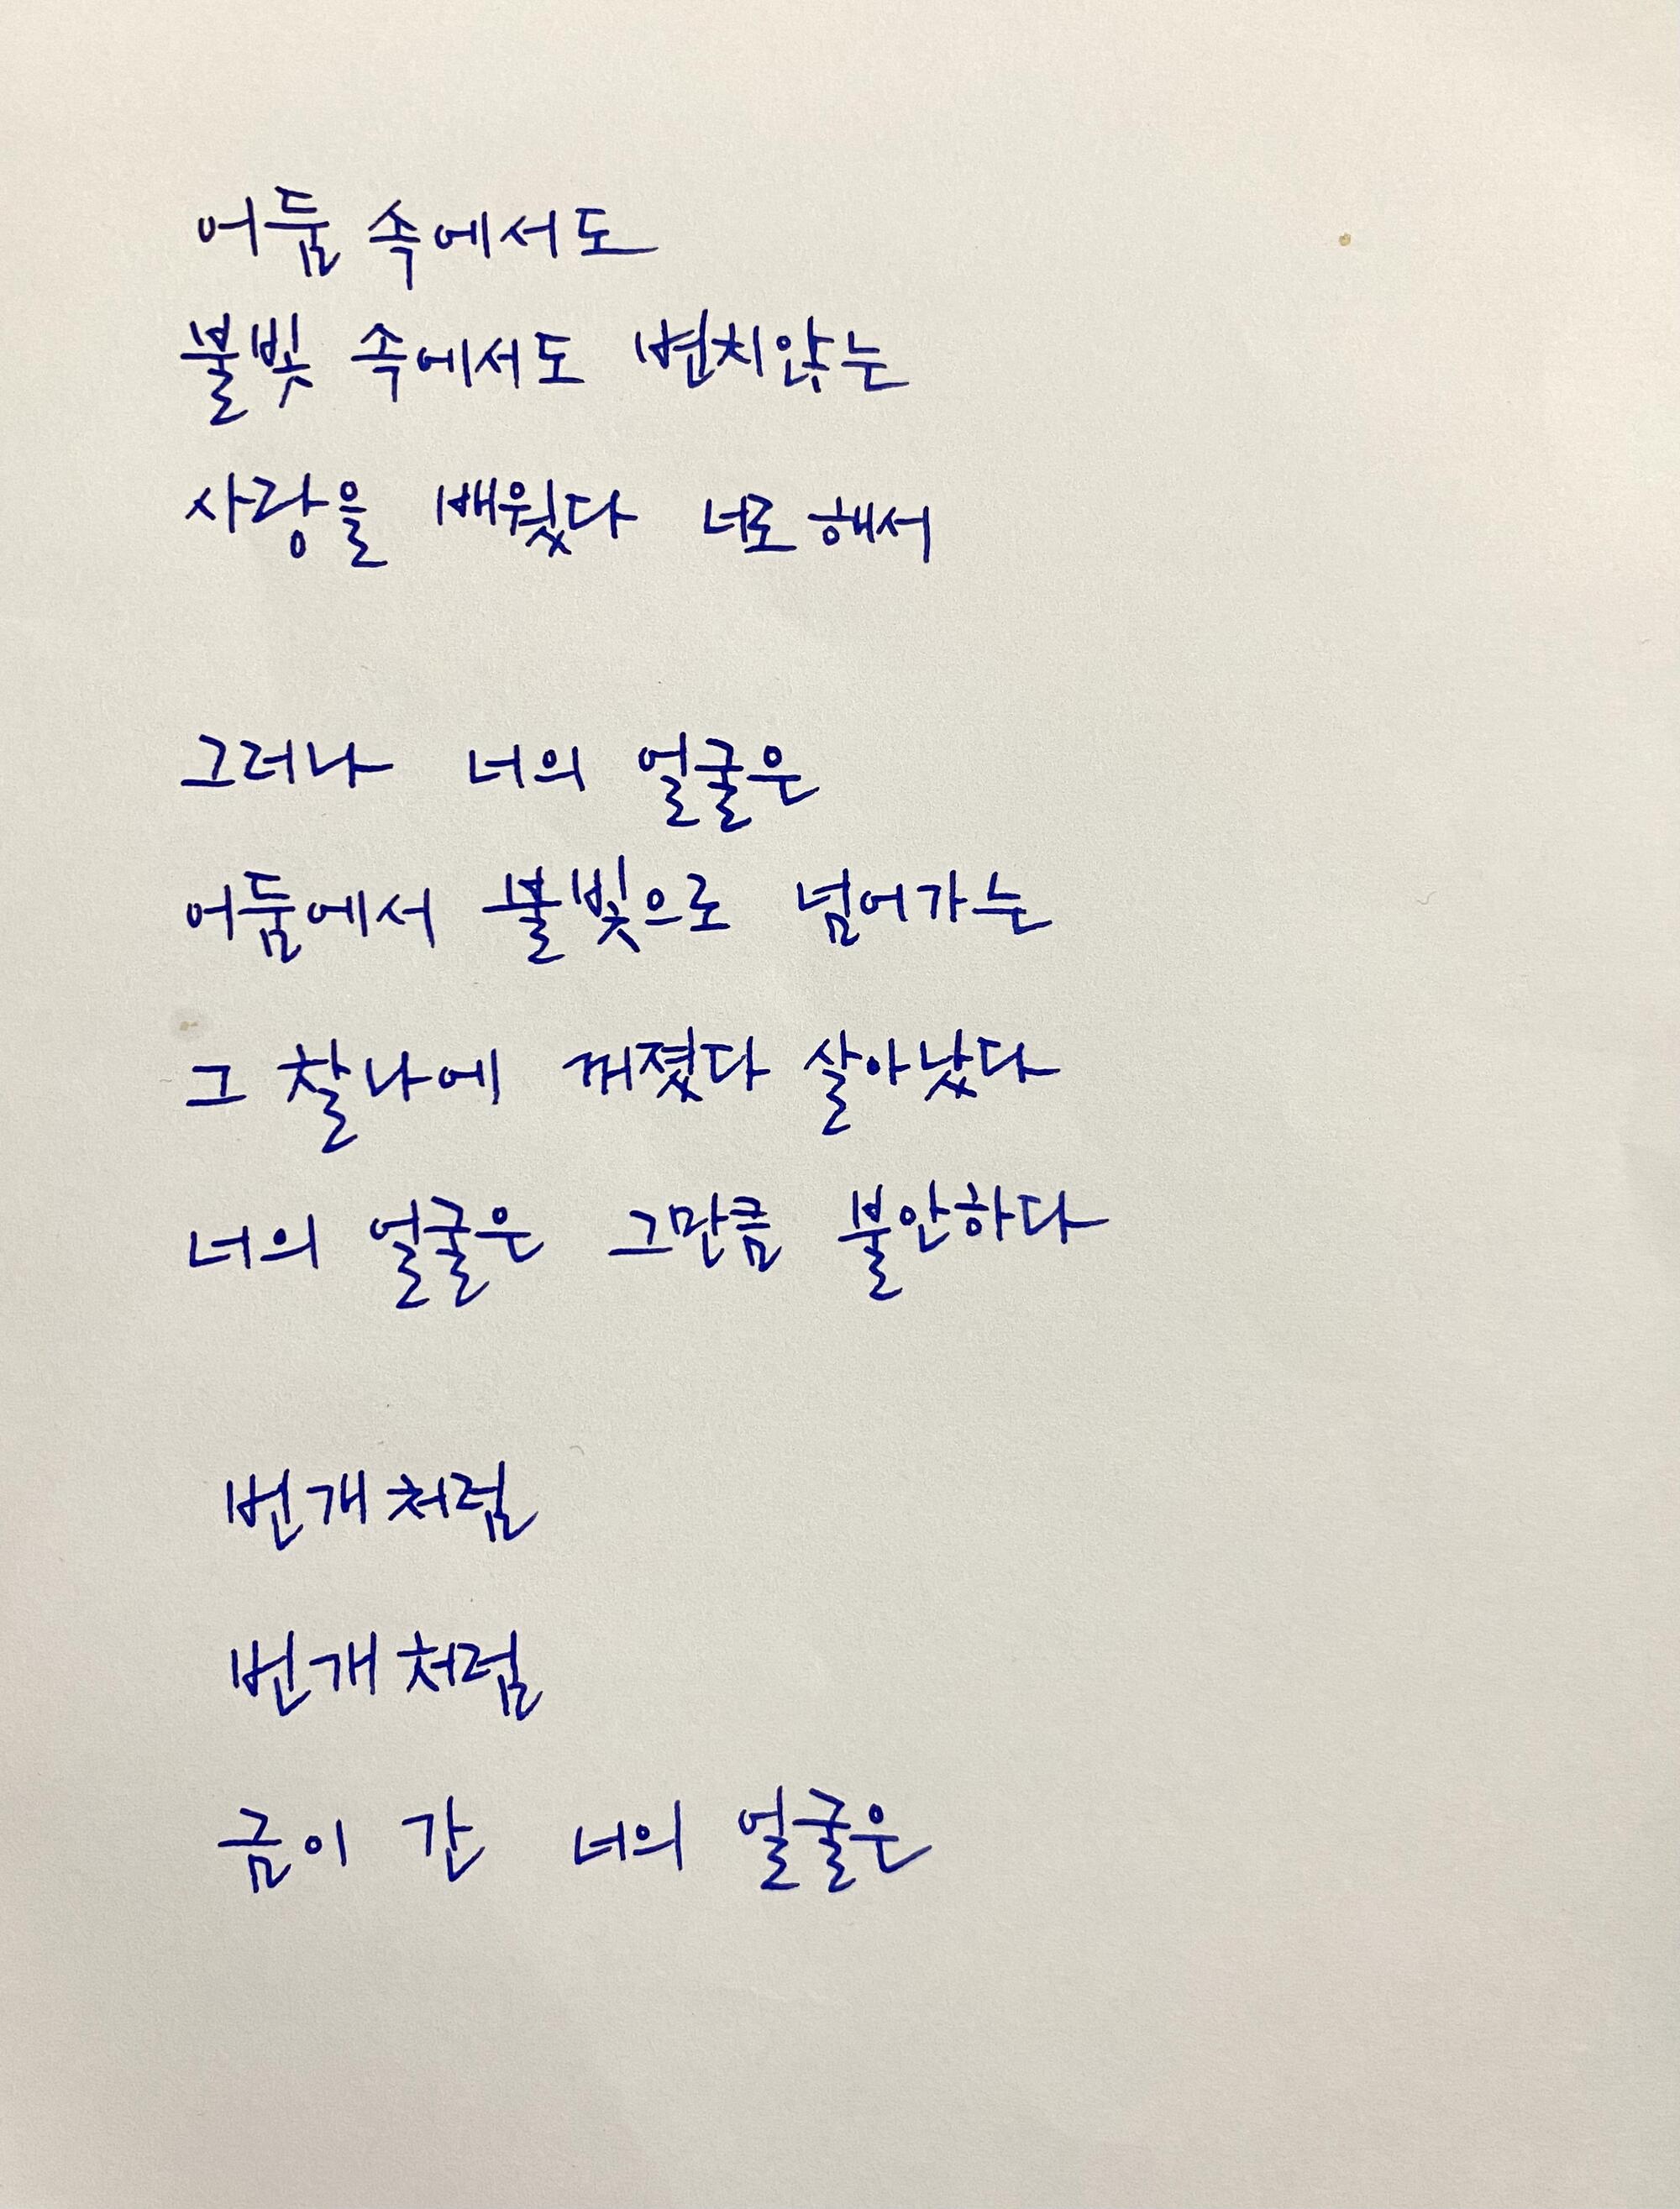 어둠 속에서도
불빛 속에서도 변치않는
사랑을 배웠다 너로 해서
그러나 너의 얼굴은
어둠에서 불빛으로 넘어가는
그 찰나에 꺼졌다 살아났다
너의 얼굴은 그만큼 불안하다
번개처럼
번개처럼
금이 간 너의 얼굴은